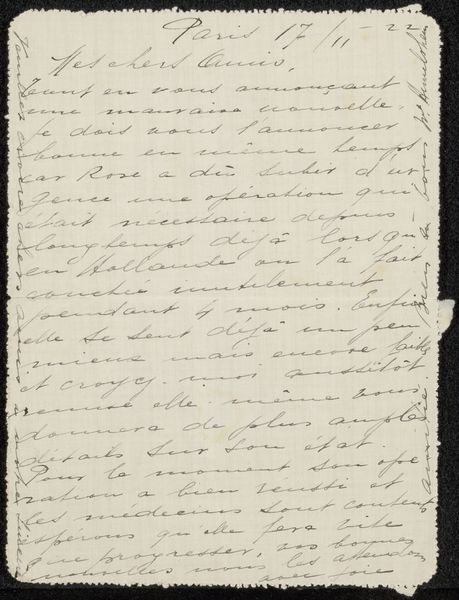 Paris 17/11 - 22
Mes chers Amis,
tout en vous annonçant
une mauvaise nouvelle.
Je dois vous l'annoncer
bonne en même temps
car Rose a dû subir d'ur
gence une opération qui
était nécessaire depuis
longtemps déjà lorsqu'
en Hollande on l'a fait
couchée inutilement
pendant 4 mois. Enfin
elle se sent déjà un peu
mieux mais encore faible
et croyez moi aussitôt
remise elle même vous
donnera de plus ample
détails sur son état.
Pour le moment son opé
ration a bien réussi et
les médecins sont contents
espérons qu'elle fera vite
que progresser, vos bonnes
nouvelles nous les attendons
avec joie